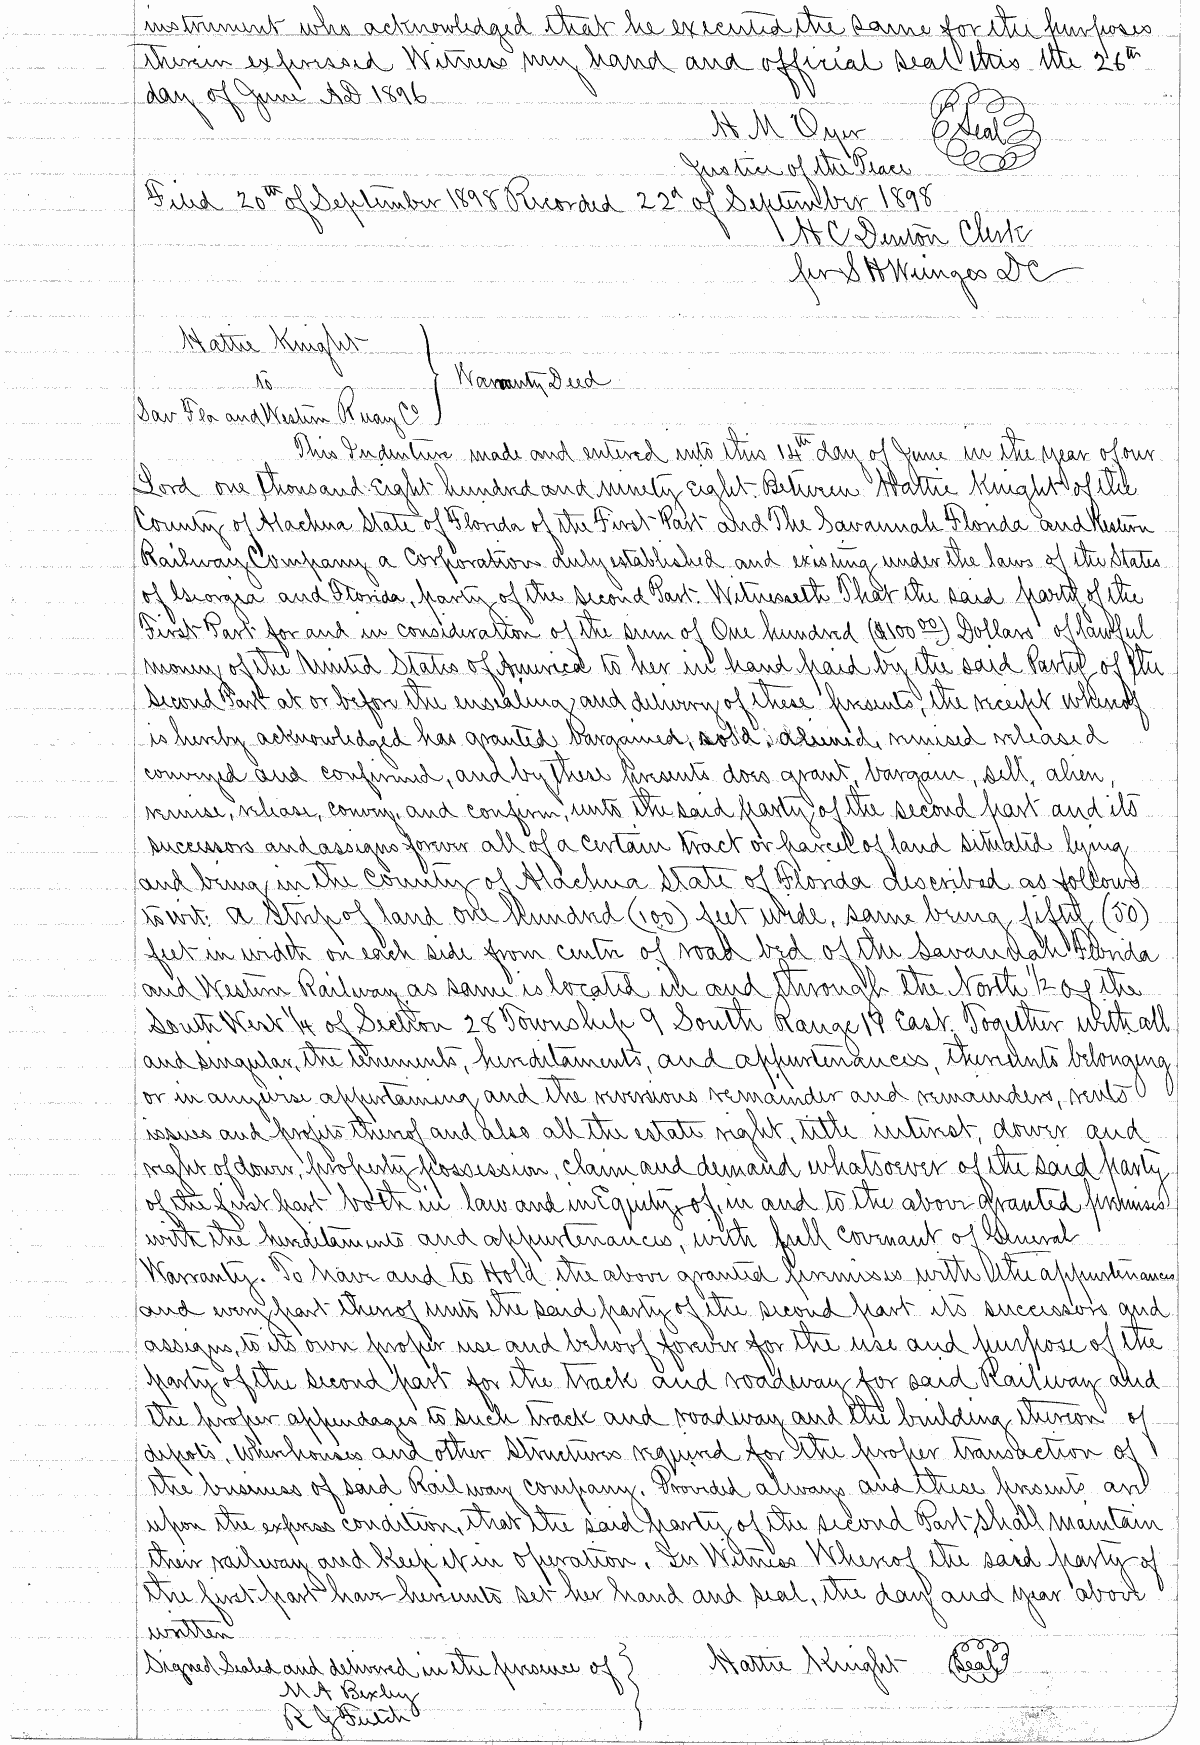 instrument who acknowledged that he executed the same for the purposes
therein expressed Witness my hand and official seal this the 26th
day of June AD 1896
H M Dyer Seal
Justice of the Peace
Filed 20th of September 1898 Recorded 22d of September 1898
H C Denton Clerk
per S H Wienges DC
Hattie Knight
to
Warranty Deed
Sav Fla and Western Rway Co
This Indenture made and entered into this 14th day of June in the year of our
Lord one thousand Eight hundred and ninety eight. Between Hattie Knight of the
County of Alachua State of Florida of the First Part and The Savannah Florida and Western
Railway Company a Corporation duly established and existing under the laws of the States
of Georgia and Florida, party of the second Part. Witnesseth That the said party of the
First Part for and in consideration of the sum of One hundred ($100 00) Dollars of lawful
money of the United States of America to her in hand paid by the said Party of the
Second Part at or before the ensealing and delivery of these presents, the receipt whereof
is hereby acknowledged has granted bargained, sold, aliened, remised released
conveyed and confirmed, and by these presents does grant, bargain, sell, alien,
remise, release, convey, and confirm, unto the said party of the second part and its
successors and assigns forever all of a certain tract or parcel of land situated lying
and being in the County of Alachua State of Florida described as follows
to wit: A Strip of land one hundred (100) feet wide, same being fifty (50)
feet in width on each side from centre of road bed of the Savannah Florida
and Western Railway as same is located in and through the North 1/2 of the
South West 1/4 of Section 28 Township 9 South Range 19 East. Together with all
and singular, the tenements, hereditaments, and appurtenances, thereunto belonging
or in anywise appertaining and the reversions remainder and remainders, rents
issues and profits thereof and also all the estate right, title interest, dower and
right of dower, property possession, claim and demand whatsoever of the said party
of the first part both in law and in Equity, of, in and to the above granted premises
with the hereditaments and appurtenances, with full covenant of General
Warranty. To have and to Hold the above granted premises with the appurtenances
and every part thereof unto the said party of the second part its successors and
assigns, to its own proper use and behoof forever for the use and purpose of the
party of the second part for the track and roadway for said Railway and
the proper appendages to such track and roadway and the building thereon of
depots, Wherehouses and other structures required for the proper transaction of
the business of said Railway company. Provided always and these presents are
upon the express condition, that the said party of the second Part, shall maintain
their railway and keep it in operation. In Witness Whereof the said party of
the first part have hereunto set her hand and seal, the day and year above
written
Signed Sealed and delivered in the presence of Hattie Knight Seal
M A Bixby
R G Futch